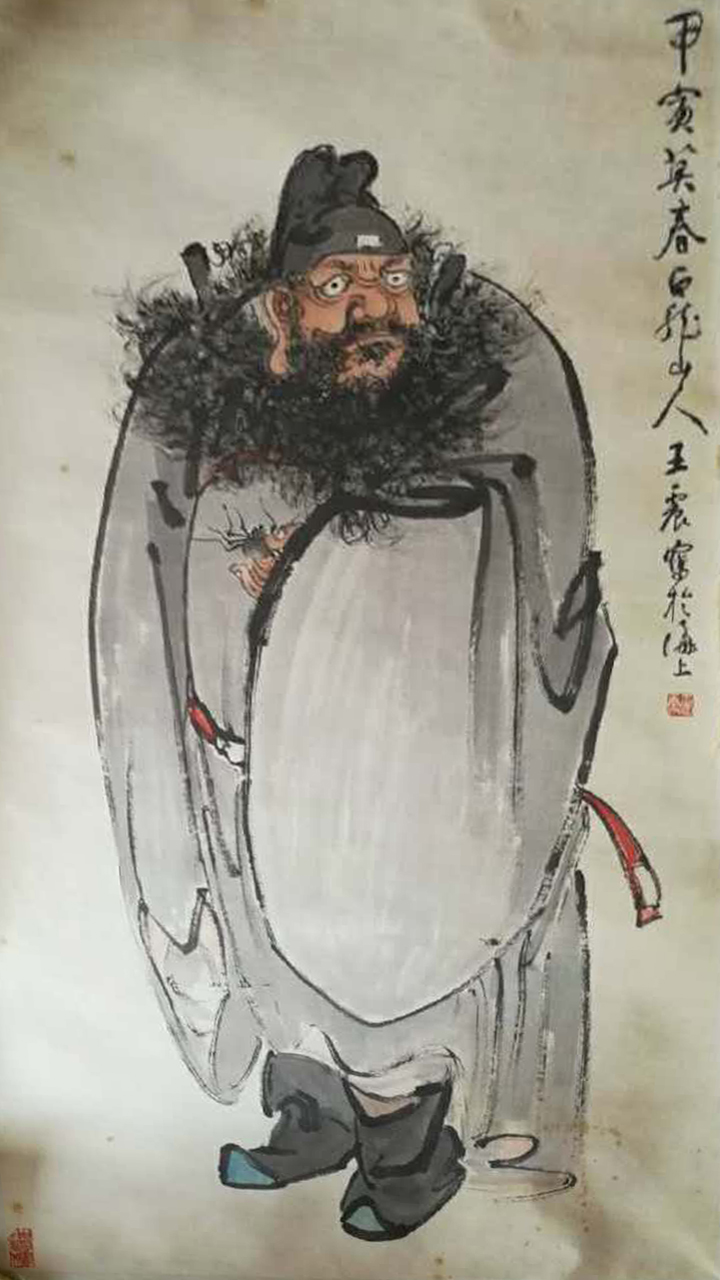 甲寅莫春白龍山人王震寫於海上